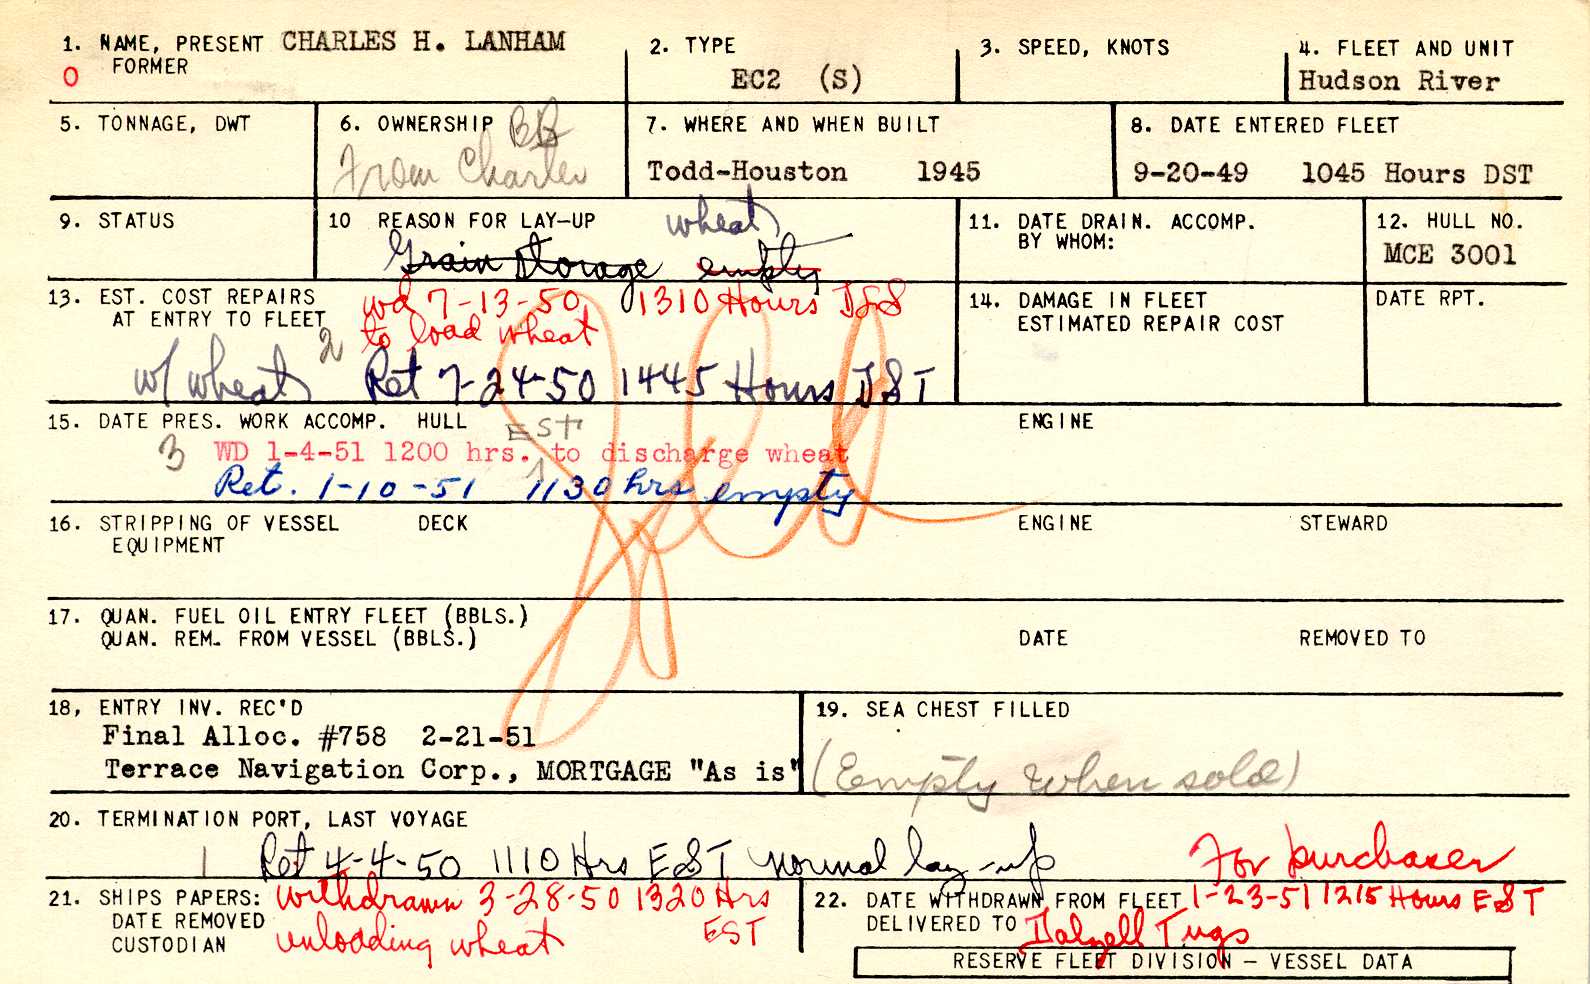 1. NAME, PRESENT CHARLES H. LANHAM
O FORMER
2. TYPE
EC2 (S)
3. SPEED, KNOTS
4. FLEET AND UNIT
Hudson River
5. TONNAGE, DWT
6. OWNERSHIP BB
From Charter
7. WHERE AND WHEN BUILT
Todd-Houston 1945
8. DATE ENTERED FLEET
9-20-49 1045 Hours DST
9. STATUS
10 REASON FOR LAY-UP wheat
Grain Storage empty
11. DATE DRAIN. ACCOMP.
BY WHOM:
12. HULL NO.
MCE 3001
13. EST. COST REPAIRS
AT ENTRY TO FLEET
wd 7-13-50 1310 Hours DST
to load wheat
2
w/ wheat Ret 7-24-50 1445 Hours DST
14. DAMAGE IN FLEET
ESTIMATED REPAIR COST
DATE RPT.
15. DATE PRES. WORK ACCOMP. HULL ENGINE
EST
3 WD 1-4-51 1200 hrs. to discharge wheat
Ret. 1-10-51 1130 hrs empty
Sold
16. STRIPPING OF VESSEL DECK ENGINE STEWARD
EQUIPMENT
17. QUAN. FUEL OIL ENTRY FLEET (BBLS.)
QUAN. REM. FROM VESSEL (BBLS.) DATE REMOVED TO
18, ENTRY INV. REC'D
Final Alloc. #758 2-21-51
Terrace Navigation Corp., MORTGAGE "As is"
19. SEA CHEST FILLED
(Empty when sold)
20. TERMINATION PORT, LAST VOYAGE
1 Ret 4-4-50 1110 Hrs EST normal lay-up For purchaser
21. SHIPS PAPERS: withdrawn 3-28-50 1320 Hrs
DATE REMOVED EST
CUSTODIAN unloading wheat
22. DATE WITHDRAWN FROM FLEET 1-23-51 1215 Hours EST
DELIVERED TO Dalzell Tugs
RESERVE FLEET DIVISION — VESSEL DATA